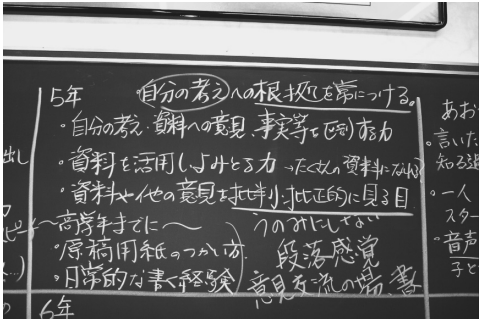 5年
自分の考えへの根拠を常につける。
・自分の考え・資料への意見、事実等を区別する力
・資料を活用しよみとる力 →たくさんの資料になれる
・資料や他の意見を批判、批正的に見る目
うのみにしない
〜高学年までに〜
・原稿用紙のつかい方
・日常的な書く経験
段落感覚
意見交流の場、書
6年
出し
あお
・言いた
知る過
・一人
スター
・音声
子と